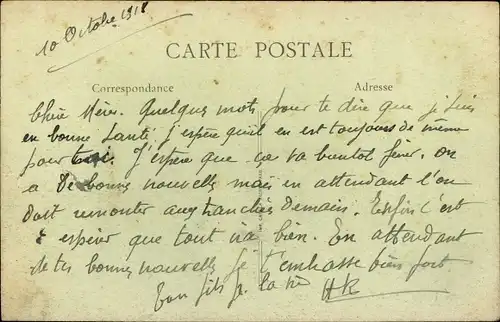 10 Octobre 1918
CARTE POSTALE
Correspondance Adresse
Chère Mère. Quelques mots pour te dire que je suis
en bonne santé j'espère qu'il en est toujours de même
pour toi. J'espère que ça va bientot finir. on
a de bonnes nouvelles mais en attendant l'on
doit remonter aux tranchées demain. Enfin c'est
à espérer que tout va bien. En attendant
de tes bonnes nouvelles je t'embrasse bien fort
Ton fils
HR